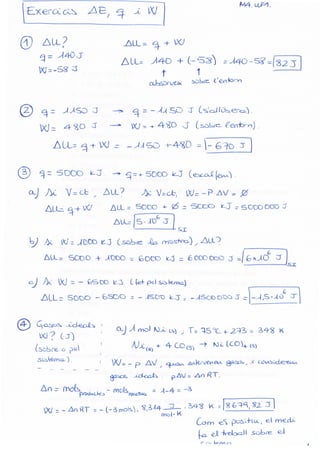 M4.UF1.
Exercicis ΔE, q i W
① ΔU?
q = 140 J
W = -58 J
ΔU = q + W
ΔU = 140 + (-58) = 140 - 58 = 82 J
↑ ↑
absorveix sobre l'entorn
② q = 1150 J → q = -1150 J (s'allibera).
W = 480 J → W = + 480 J (sobre l'entorn).
ΔU = q + W = -1150 + 480 = -670 J
③ q = 5000 kJ → q = + 5000 kJ (escalfem).
a) Si V=ct, ΔU? Si V=ct, W = -P ΔV = Ø
ΔU = q + W ΔU = 5000 + Ø = 5000 kJ = 5000000 J
ΔU = 5·10⁶ J SI
b) Si W = 1000 kJ (sobre la mostra), ΔU?
ΔU = 5000 + 1000 = 6000 kJ = 6000000 J = 6·10⁶ J SI
c) Si W = - 6500 kJ (fet pel sistema)
ΔU = 5000 - 6500 = - 1500 kJ = -1500000 J = -1,5·10⁶ J
④ Gasos ideals:
W? (J)
(sobre o pel
sistema).
a) 1 mol Ni (s), T= 75ºC + 273 = 348 K
Ni (s) + 4 CO (g) → Ni(CO)₄ (g)
W = - P ΔV, gasos, i considerem
gasos ideals. pΔV = ΔnRT.
Δn = mols productes - mols = 1-4 = -3
W = - ΔnRT = -(-3mols). 8,314 J/mol·K . 348 K = 8679,82 J
Com és positiu, el medi
fa el treball sobre el